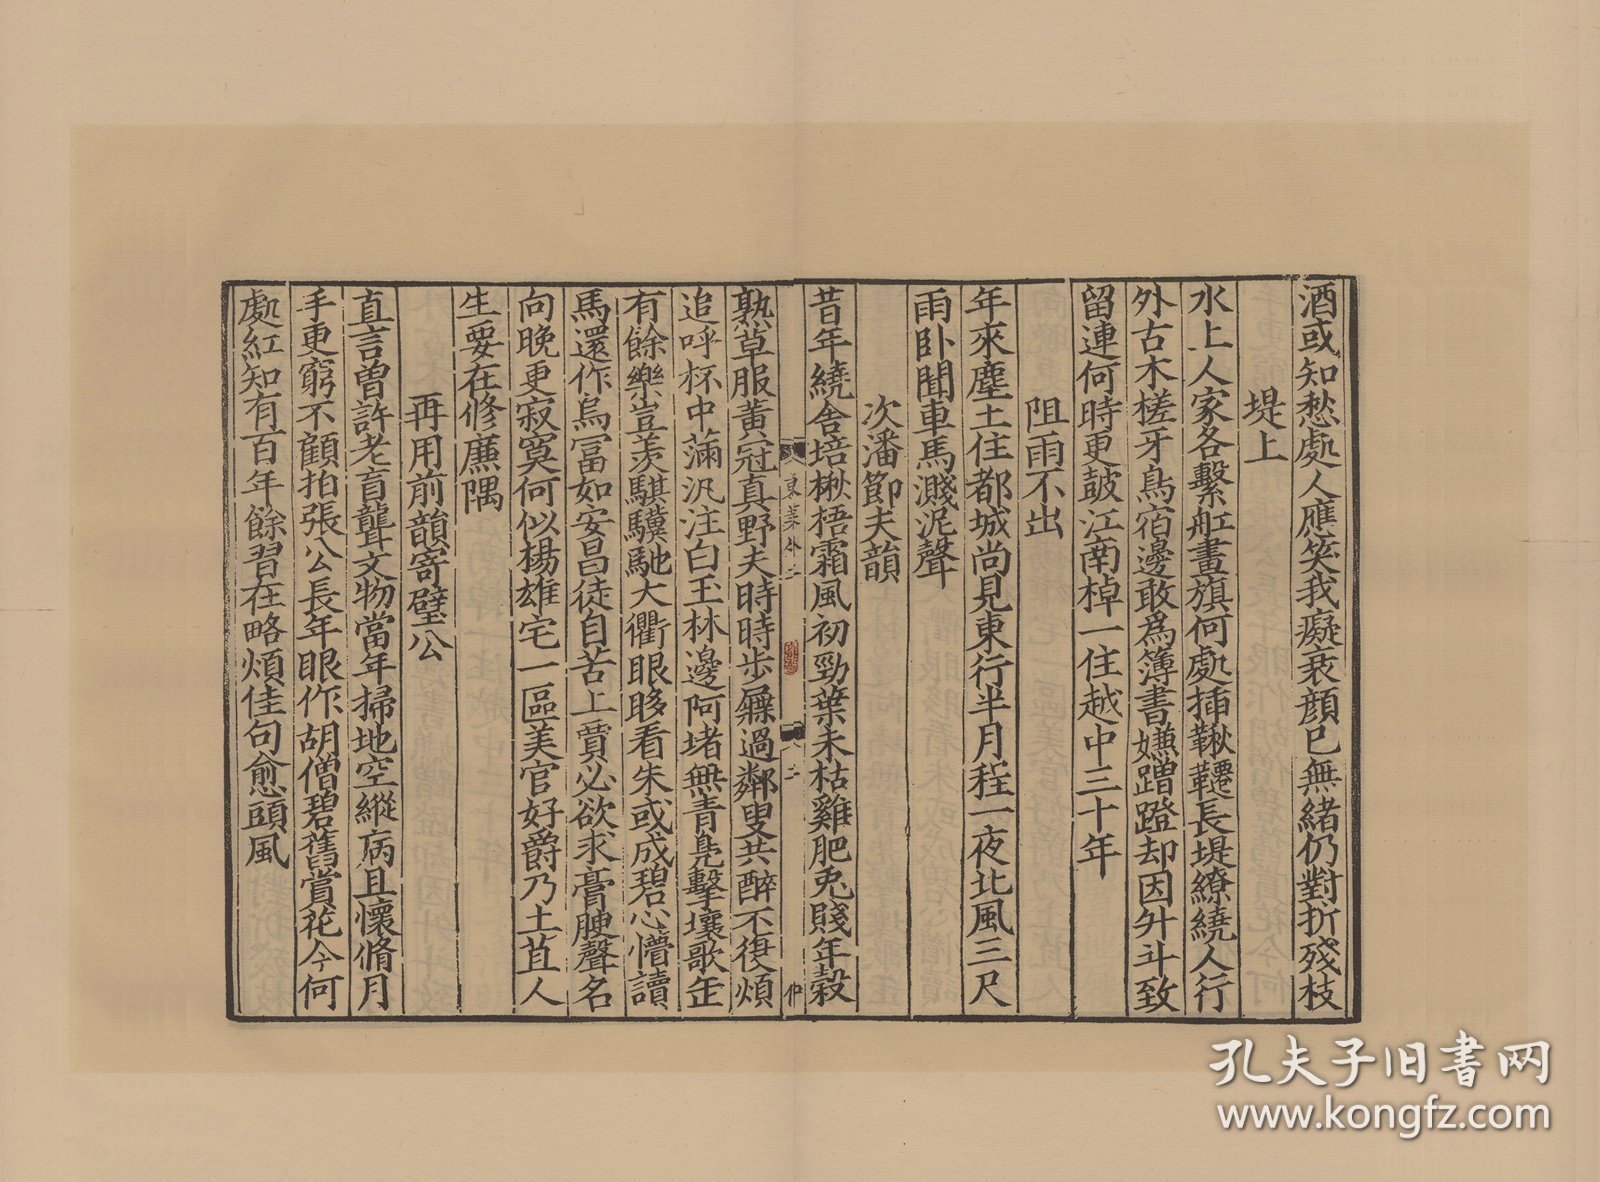 酒或知愁處人應笑我癡衰顔已無緒仍對折殘枝
堤上
水上人家各繫舡畫旗何處插鞦韆長堤繚繞人行
外古木槎牙鳥宿邊敢爲簿書嫌蹭蹬却因舛斗致
留連何時更鼓江南棹一住越中三十年
阻雨不出
年來塵土住都城尚見東行半月程一夜北風三尺
雨卧聞車馬濺泥聲
次潘節夫韻
昔年繞舍培楸梧霜風初勁葉未枯雞肥兎賤年穀
東萊外二
二
仲
熟草服黄冠真野夫時時步屧過鄰叟共醉不復煩
追呼杯中滿汎注白玉林邊阿堵無青凫擊壤歌年
有餘樂豈羡騏驥馳大衢眼眵看朱或成碧心懵讀
馬還作烏冨如安昌徒自苦上賈必欲求膏腴聲名
向晚更寂寞何似楊雄宅一區美官好爵乃土苴人
生要在修廉隅
再用前韻寄璧公
直言曽許老盲聾文物當年掃地空縱病且懷脩月
手更窮不顧拍張公長年眼作胡僧碧舊賞花今何
處紅知有百年餘習在略煩佳句愈頭風
孔夫子旧书网
www.kongfz.com